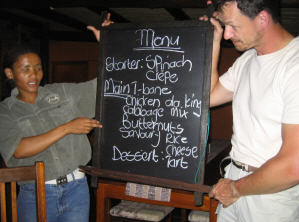 Menu
Starter: Spinach
Crepe
Main T-bone
Chicken ala king
Cabbage mix
Butternuts
Savoury Rice
Dessert: Cheese
Tart